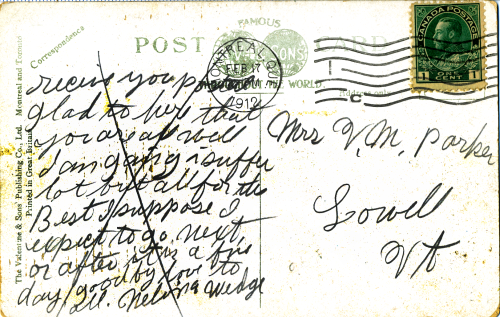 Correspondence
FAMOUS
POST CARD
MONTREAL, QUE
FEB 17
1912
WORLD.
Address only
CANADA POSTAGE
1 ONE CENT 1
The Valentine & Sons' Publishing Co., Ltd. Montreal and Toronto
Printed in Great Britain
recieve you postal
glad to here that
you are all well
I am going i suffer
lot but all for the
Best I suppose I
expect to go next
or after it is a fine
day good by love to
all. Nelvina Wedge
Mrs V. M. Parker
Lowell
Vt